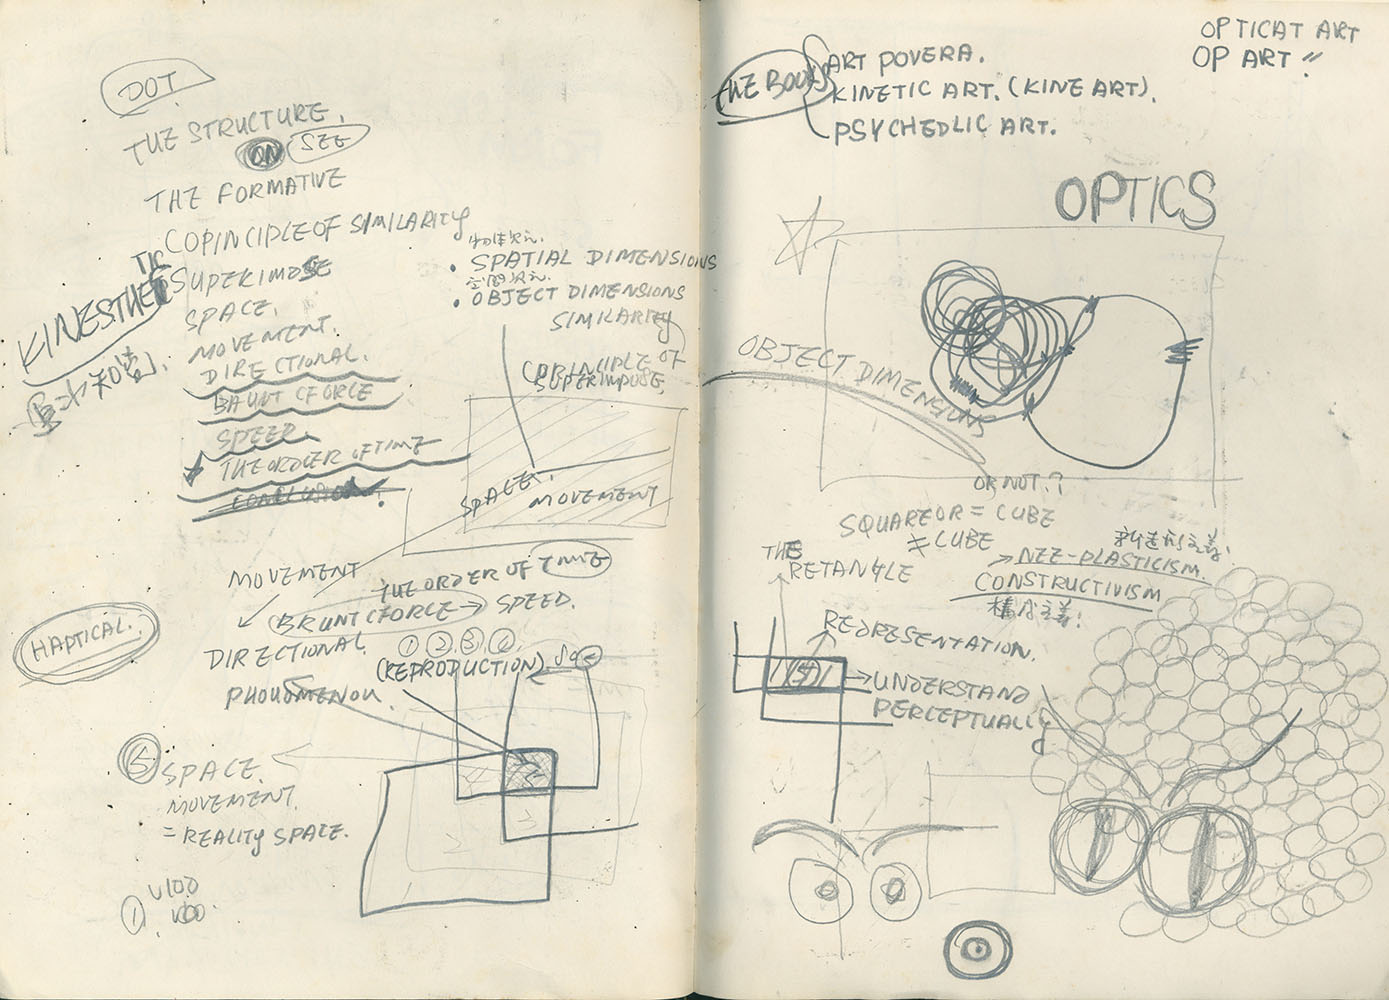 DOT.
THE STRUCTURE.
ON SEE
THE FORMATIVE
COPINCIPLE OF SIMILARITY
SUPERIMOSE
SPACE.
MOVEMENT.
DIRECTIONAL.
BAUNT CFORCE
SPEED.
THE ORDER OF TIME
CONCLUSION!
KINESTHETIC
物体次元.
• SPATIAL DIMENSIONS
空間次元.
• OBJECT DIMENSIONS
SIMILARITY
COPRINCIPLE OF
SUPERIMPOSE.
SPACE.
MOVEMENT
MOVEMENT
THE ORDER OF TIME
BRUNT CFORCE → SPEED.
DIRECTIONAL.
① ② ③ ④
(REPRODUCTION)
HAPTICAL.
SPACE.
MOVEMENT.
= REALITY SPACE.
①
V100
V00.
THE BOOKS
ART POVERA.
KINETIC ART. (KINE ART).
PSYCHEDLIC ART.
OPTICAT ART
OP ART "
OPTICS
OBJECT DIMENSIONS
OR NOT.?
SQUAREOR = CUBE
≠ CUBE
THE
RETANGLE
新造形主義.
→ NEE-PLASTICISM.
CONSTRUCTIVISM
構成主義!
REPRESENTATION.
→ UNDERSTAND
PERCEPTUALLY